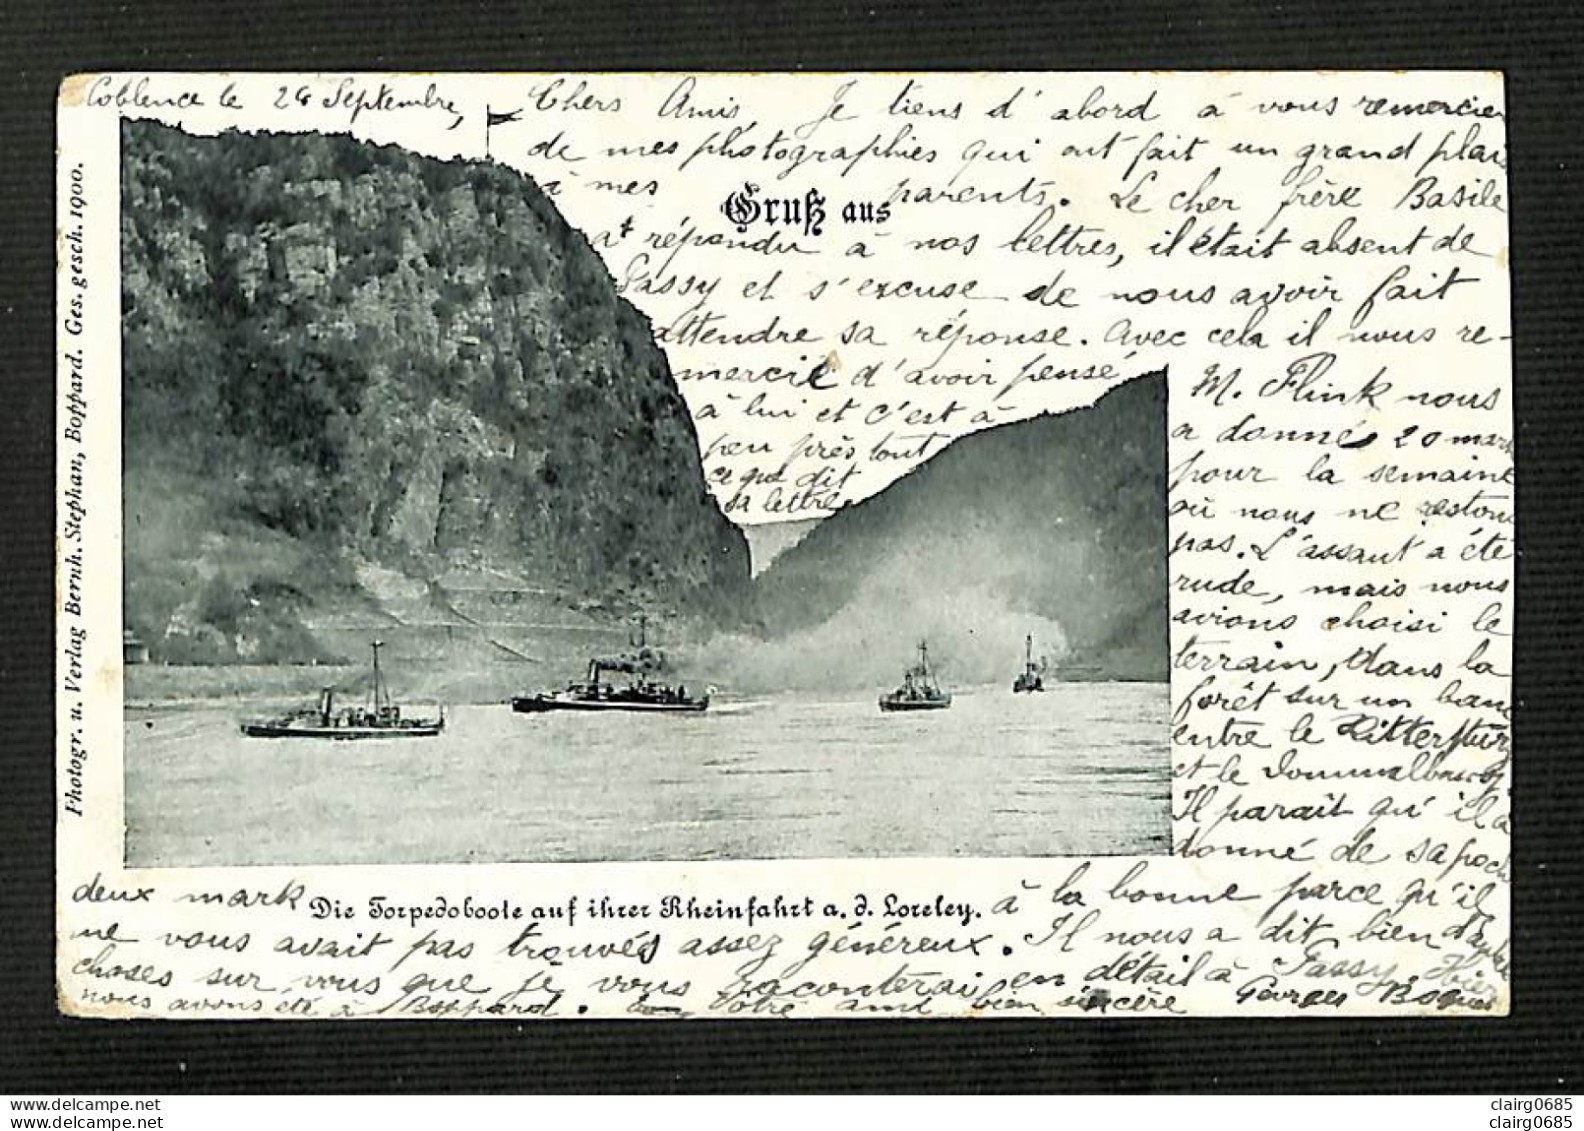 Coblence le 28 Septembre,
Chers Amis, Je tiens d'abord à vous remercier
de mes photographies qui ont fait un grand plai
à mes parents. Le cher frère Basile
Gruß aus
at répondu à nos lettres, il était absent de
Passy et s'excuse de nous avoir fait
attendre sa réponse. Avec cela il nous re-
mercie d'avoir pensé
à lui et c'est à
peu près tout
ce que dit
sa lettre
M. Flink nous
a donné 20 mark
pour la semaine
où nous ne restons
pas. L'assaut a été
rude, mais nous
avions choisi le
terrain, dans la
forêt sur un banc
entre le Rittersturz
et le
Il parait qu'il a
donné de sa poch
deux mark à la bonne parce qu'il
Die Torpedoboote auf ihrer Rheinfahrt a. d. Loreley.
ne vous avait pas trouvés assez généreux. Il nous a dit bien d'autres
choses sur vous que je vous raconterai en détail à Passy. Hier
nous avons été à Boppard. Votre ami bien sincère Georges
Photogr. u. Verlag Bernh. Stephan, Boppard. Ges. gesch. 1900.
delcampe.net
delcampe.net
clairg0685
clairg0685